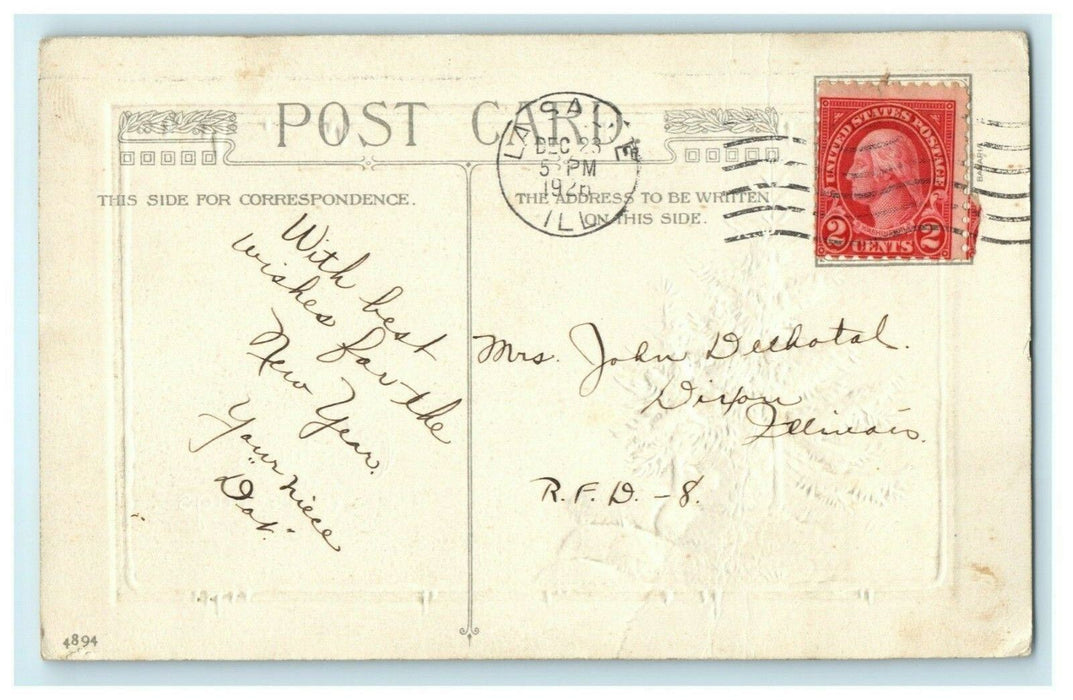 POST CARD
THIS SIDE FOR CORRESPONDENCE.
THE ADDRESS TO BE WRITTEN
ON THIS SIDE.
LA SALLE
DEC 23
5 PM
1926
ILL
UNITED STATES POSTAGE
WASHINGTON
2 CENTS 2
With best
wishes for the
New Year.
Your niece
"Dot."
Mrs. John
Dixon
Illinois.
R.F.D. -8.
4894